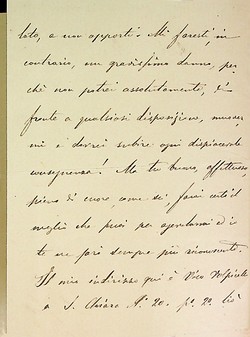 loto, a non apporti. Mi faresti, in
contrario, un gravissimo danno, per
chè non potrei assolutamente, di
fronte a qualsiasi disposizione, muover
mi e dovrei subire ogni dispiacente
conseguenza! Ma tu buono, affettuoso,
pieno di cuore come sei, farai certo il
meglio che puoi per ajutarmi ed io
te ne sarò sempre più riconoscente.
Il mio indirizzo qui è Vico
a S. Chiara N.º 20. pº 2º